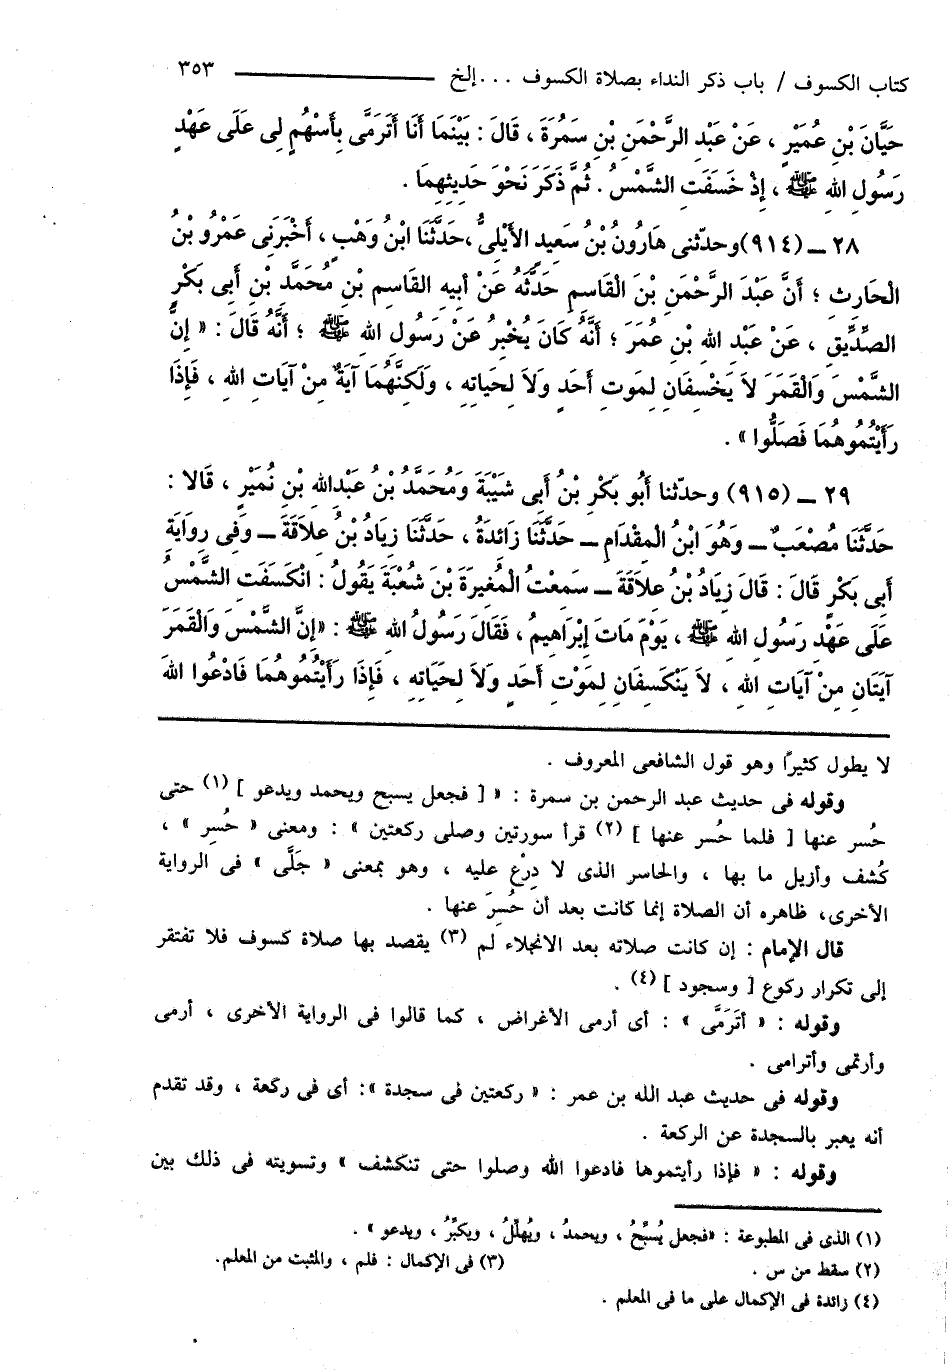 كتاب الكسوف / باب ذكر النداء بصلاة الكسوف ... إلخ ــــــــــ ٣٥٣
حَيَّانَ بْنِ عُمَيْرٍ ، عَنْ عَبْدِ الرَّحْمَنِ بْنِ سَمُرَةَ ، قَالَ : بَيْنَمَا أَنَا أَتَرَمَّى بِأَسْهُمٍ لِى عَلَى عَهْدِ
رَسُولِ اللهِ ﷺ ، إِذْ خَسَفَتِ الشَّمْسُ . ثُمَّ ذَكَرَ نَحْوَ حَدِيثِهِمَا .
٢٨ ــ (٩١٤) وحدّثنى هَارُونُ بْنُ سَعِيدٍ الأَيْلِىُّ ،حَدَّثَنَا ابْنُ وَهْبٍ ، أَخْبَرَنِى عَمْرُو بْنُ
الْحَارِثِ ؛ أَنَّ عَبْدَ الرَّحْمَنِ بْنَ الْقَاسِمِ حَدَّثَهُ عَنْ أَبِيهِ القَاسِمِ بْنِ مُحَمَّدِ بْنِ أَبِى بَكْرٍ
الصِّدِّيقِ ، عَنْ عَبْدِ اللهِ بْنِ عُمَرَ ؛ أَنَّهُ كَانَ يُخْبِرُ عَنْ رَسُولِ اللهِ ﷺ ؛ أَنَّهُ قَالَ : « إِنَّ
الشَّمْسَ وَالْقَمَرَ لاَ يَخْسِفَانِ لِمَوتِ أَحَدٍ وَلاَ لِحَيَاتِهِ ، وَلَكِنَّهُمَا آيَةٌ مِنْ آيَاتِ اللهِ ، فَإِذَا
رَأَيْتُمُوهُمَا فَصَلُّوا » .
٢٩ ــ (٩١٥) وحدّثنا أَبُو بَكْرِ بْنُ أَبِى شَيْبَةَ وَمُحَمَّدُ بْنُ عَبْدِاللهِ بْنِ نُمَيْرٍ ، قَالا :
حَدَّثَنَا مُصْعَبٌ ــ وَهُوَ ابْنُ الْمِقْدَامِ ــ حَدَّثَنَا زَائِدَةُ ، حَدَّثَنَا زِيَادُ بْنُ عِلاَقَةَ ــ وَفِى رِوَايَةِ
أَبِى بَكْرٍ قَالَ : قَالَ زِيَادُ بْنُ عِلاَقَةَ ــ سَمِعْتُ الْمُغِيرَةَ بْنَ شُعْبَةَ يَقُولُ : انْكَسَفَتِ الشَّمْسُ
عَلَى عَهْدِ رَسُولِ اللهِ ﷺ ، يَوْمَ مَاتَ إِبْرَاهِيمُ ، فَقَالَ رَسُولُ اللهِ ﷺ : «إِنَّ الشَّمْسَ وَالْقَمَرَ
آيَتَانِ مِنْ آيَاتِ اللهِ ، لاَ يَنْكَسِفَانِ لِمَوْتِ أَحَدٍ وَلاَ لِحَيَاتِهِ ، فَإِذَا رَأَيْتُمُوهُمَا فَادْعُوا اللهَ
لا يطول كثيرًا وهو قول الشافعى المعروف .
وقوله فى حديث عبد الرحمن بن سمرة : « [ فجعل يسبح ويحمد ويدعو ] (١) حتى
حُسر عنها [ فلما حُسر عنها ] (٢) قرأ سورتين وصلى ركعتين » : ومعنى « حُسِر » ،
كُشف وأزيل ما بها ، والحاسر الذى لا دِرْع عليه ، وهو بمعنى « جَلَّى » فى الرواية
الأخرى، ظاهره أن الصلاة إنما كانت بعد أن حُسِرَ عنها .
قال الإمام : إن كانت صلاته بعد الانجلاء لم (٣) يقصد بها صلاة كسوف فلا تفتقر
إلى تكرار ركوع [ وسجود ] (٤) .
وقوله : « أَتَرَمَّى » : أى أرمى الأغراض ، كما قالوا فى الرواية الأخرى ، أرمى
وأرتمى وأترامى .
وقوله فى حديث عبد الله بن عمر : « ركعتين فى سجدة »: أى فى ركعة ، وقد تقدم
أنه يعبر بالسجدة عن الركعة .
وقوله : « فإذا رأيتموها فادعوا الله وصلوا حتى تنكشف » وتسويته فى ذلك بين
(١) الذى فى المطبوعة : «فجعل يُسَبِّحُ ، ويحمدُ ، ويُهلِّلُ ، ويكبِّرُ ، ويدعو » .
(٢) سقط من س . (٣) فى الإكمال : فلم ، والمثبت من المعلم.
(٤) زائدة فى الإكمال على ما فى المعلم .